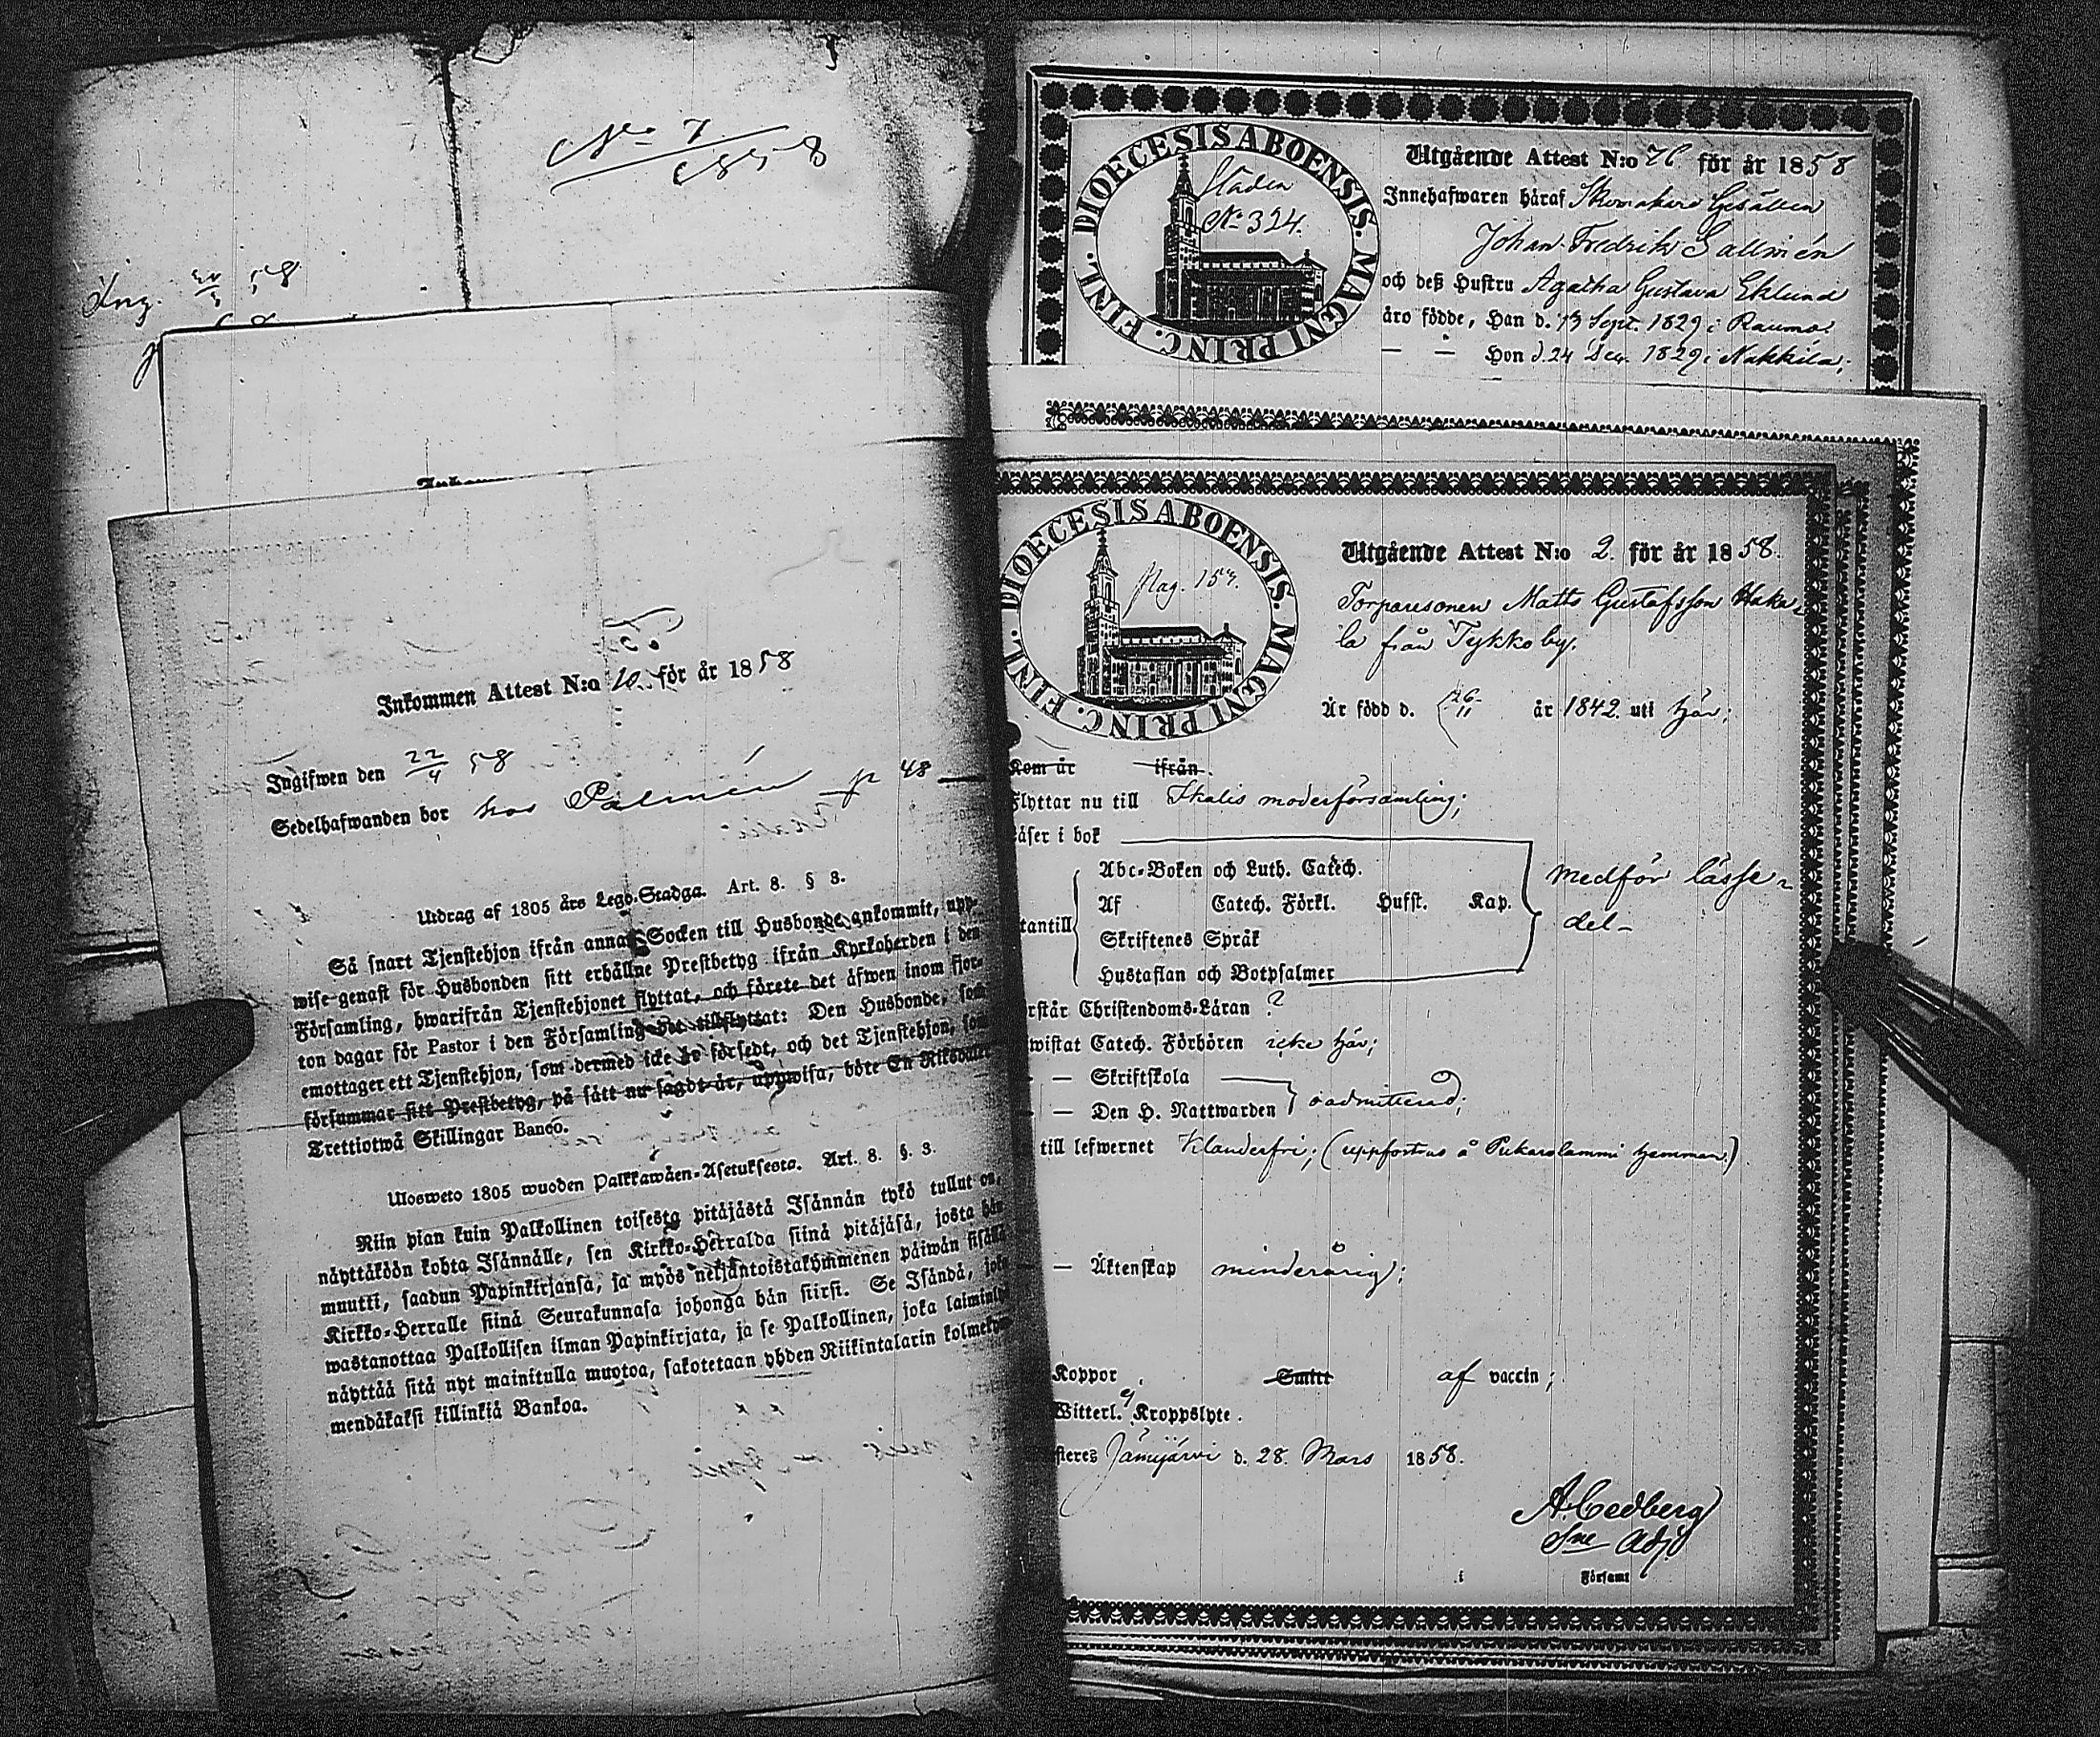 No 7
1858
Ing. 58
Inkommen Attest N:o 10. för år 1858
Ingifwen den 22/4 58
Sedelhafwanden bor hos Palmén p 48
Utdrag af 1805 års Lego-Stadga. Art. 8. § 3.
Så snart Tjenstehjon ifrån annan Socken till Husbonde ankommit, upp-
wise genast för Husbonden sitt erhållne Prestbetyg ifrån Kyrkoherden i den
Församling, hwarifrån Tjenstehjonet flyttat, och förete det äfwen inom fjor-
ton dagar för Pastor i den Församling det tillflyttat: Den Husbonde, som
emottager ett Tjenstehjon, som dermed icke är försedt, och det Tjenstehjon, som
försummar sitt Prestbetyg, på sätt nu sagdt är, uppwisa, böte En Riksdaler
Trettiotwå Skillingar Banco.
Ulosweto 1805 wuoden Palkkawäen-Asetuksesta. Art. 8. §. 3.
Niin pian kuin Palkollinen toisesta pitäjästä Isännän tykö tullut on,
näyttäköön kohta Isännälle, sen Kirkko-Herralda siinä pitäjäsä, josta hän
muutti, saadun Papinkirjansa, ja myös neljäntoistakymmenen päiwän sisällä
Kirkko-Herralle siinä Seurakunnasa johonga hän siirsi. Se Isändä, joka
wastanottaa Palkollisen ilman Papinkirjata, ja se Palkollinen, joka laiminlyö
näyttää sitä nyt mainitulla muotoa, sakotetaan yhden Riikintalarin kolmekym-
mendäkaksi killinkiä Bankoa.
DIOECESIS ABOENSIS. MAGNI PRINC. FINL.
Staden
No 324.
Utgående Attest N:o 76 för år 1858
Innehafwaren häraf Skomakare Gesällen
Johan Fredrik Sallmén
och deß Hustru Agatha Gustava Eklund
äro födde, Han d. 13 Sept. 1829 i Raumo;
— — Hon d. 24 Dec. 1829 i Nakkila;
DIOECESIS ABOENSIS. MAGNI PRINC. FINL.
pag. 157.
Utgående Attest N:o 2. för år 1858.
Torparesonen Matts Gustafsson Haka-
la från Tykkö by.
Är född d. 26/11 år 1842. uti här;
Kom år ifrån.
Flyttar nu till Ikalis moderförsamling;
Läser i bok
Abc-Boken och Luth. Catech.
Af Catech. Förkl. Husst. Kap.
tantill
Skriftenes Språk
Hustaflan och Botpsalmer
medför lässe-
del-
rstår Christendoms-Läran ?
wistat Catech. Förhören icke här;
— Skriftskola
— Den H. Nattwarden oadmitterad;
till lefwernet Klanderfri; (uppfostras å Pukarolammi hemman.)
— Äktenskap minderårig;
Koppor Smitt af vaccin;
Witterl. ej Kroppslyte.
steres Jämijärvi d. 28. Mars 1858.
A. Cedberg
Sne Adj
i Församl